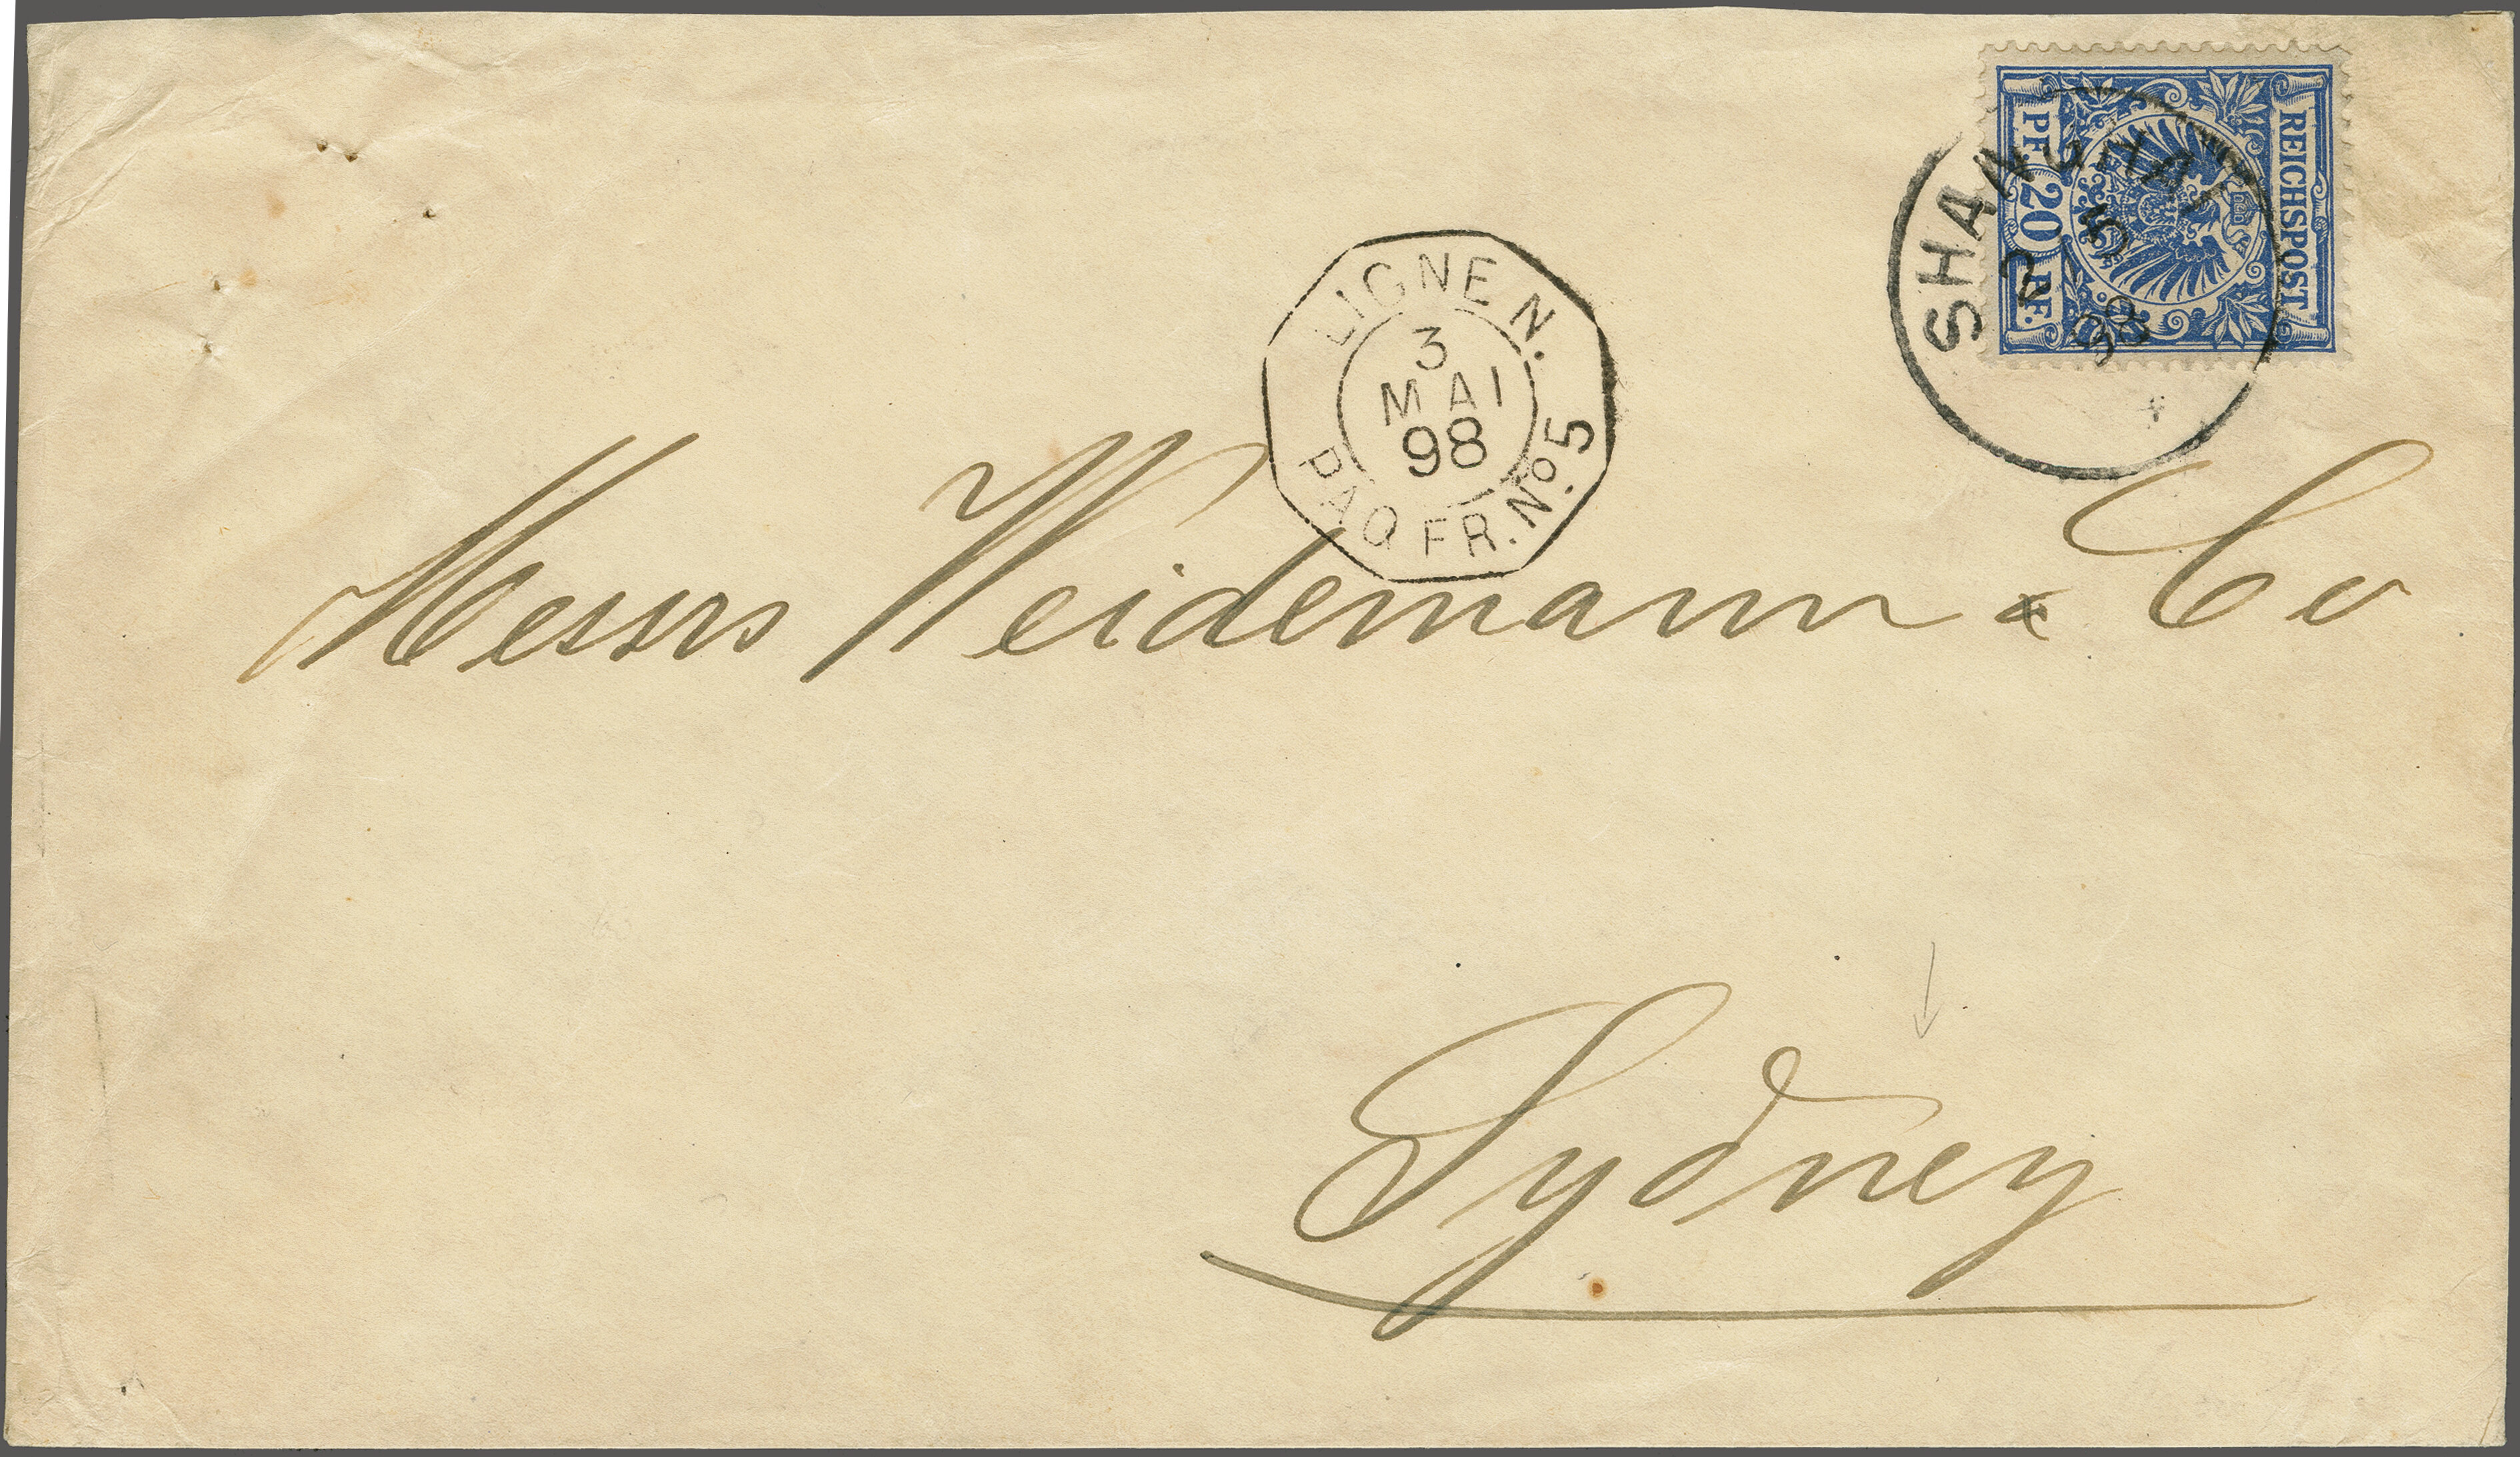 REICHSPOST
PF. 20 PF.
SHANGHAI
2 5 98
LIGNE N.
3
MAI
98
PAQ FR. Nº 5
Messrs Weidemann & Co
Sydney